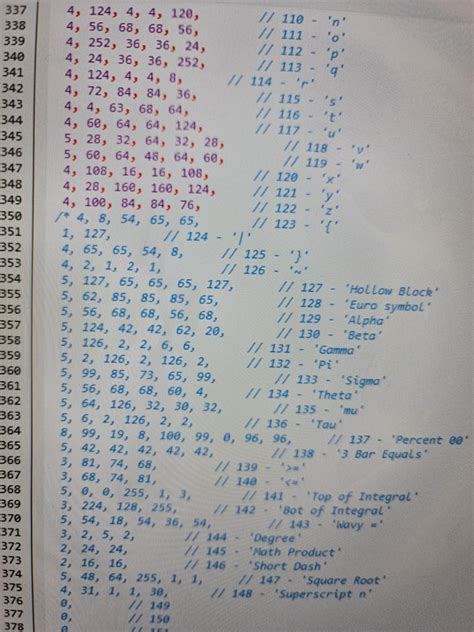 337 4, 124, 4, 4, 120, // 110 - 'n'
338 4, 56, 68, 68, 56, // 111 - 'o'
339 4, 252, 36, 36, 24, // 112 - 'p'
340 4, 24, 36, 36, 252, // 113 - 'q'
341 4, 124, 4, 4, 8, // 114 - 'r'
342 4, 72, 84, 84, 36, // 115 - 's'
343 4, 4, 63, 68, 64, // 116 - 't'
344 4, 60, 64, 64, 124, // 117 - 'u'
345 5, 28, 32, 64, 32, 28, // 118 - 'v'
346 5, 60, 64, 48, 64, 60, // 119 - 'w'
347 4, 108, 16, 16, 108, // 120 - 'x'
348 4, 28, 160, 160, 124, // 121 - 'y'
349 4, 100, 84, 84, 76, // 122 - 'z'
350 /* 4, 8, 54, 65, 65, // 123 - '{'
351 1, 127, // 124 - '|'
352 4, 65, 65, 54, 8, // 125 - '}'
353 4, 2, 1, 2, 1, // 126 - '~'
354 5, 127, 65, 65, 65, 127, // 127 - 'Hollow Block'
355 5, 62, 85, 85, 85, 65, // 128 - 'Euro symbol'
356 5, 56, 68, 68, 56, 68, // 129 - 'Alpha'
357 5, 124, 42, 42, 62, 20, // 130 - 'Beta'
358 5, 126, 2, 2, 6, 6, // 131 - 'Gamma'
359 5, 2, 126, 2, 126, 2, // 132 - 'Pi'
360 5, 99, 85, 73, 65, 99, // 133 - 'Sigma'
361 5, 56, 68, 68, 60, 4, // 134 - 'Theta'
362 5, 64, 126, 32, 30, 32, // 135 - 'mu'
363 5, 6, 2, 126, 2, 2, // 136 - 'Tau'
364 8, 99, 19, 8, 100, 99, 0, 96, 96, // 137 - 'Percent 00'
365 5, 42, 42, 42, 42, 42, // 138 - '3 Bar Equals'
366 3, 81, 74, 68, // 139 - '>='
367 3, 68, 74, 81, // 140 - '<='
368 5, 0, 0, 255, 1, 3, // 141 - 'Top of Integral'
369 3, 224, 128, 255, // 142 - 'Bot of Integral'
370 5, 54, 18, 54, 36, 54, // 143 - 'Wavy ='
371 3, 2, 5, 2, // 144 - 'Degree'
372 2, 24, 24, // 145 - 'Math Product'
373 2, 16, 16, // 146 - 'Short Dash'
374 5, 48, 64, 255, 1, 1, // 147 - 'Square Root'
375 4, 31, 1, 1, 30, // 148 - 'Superscript n'
376 0, // 149
377 0, // 150
378 0,